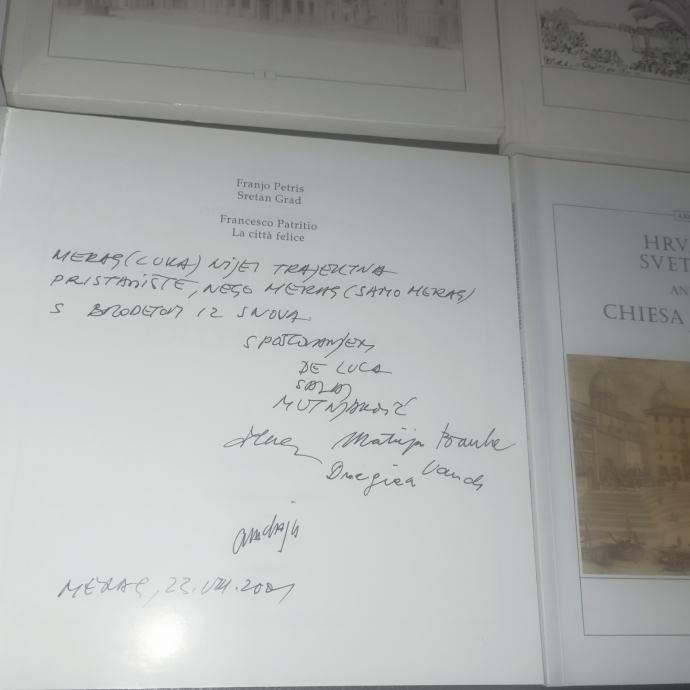 Franjo Petris
Sretan Grad
Francesco Patritio
La città felice
MERAG (LUKA) NIJE TRAJEKTNA
PRISTANIŠTE, NEGO MERAG (SAMO MERAG)
S BRODETOM IZ SNOVA.
S POŠTOVANJEM
DE LUCA
SALAJ
MUTNJAKOVIĆ
Matija
Dragica
MERAG, 23.VIII.2001
HRV
SVET
AN
CHIESA